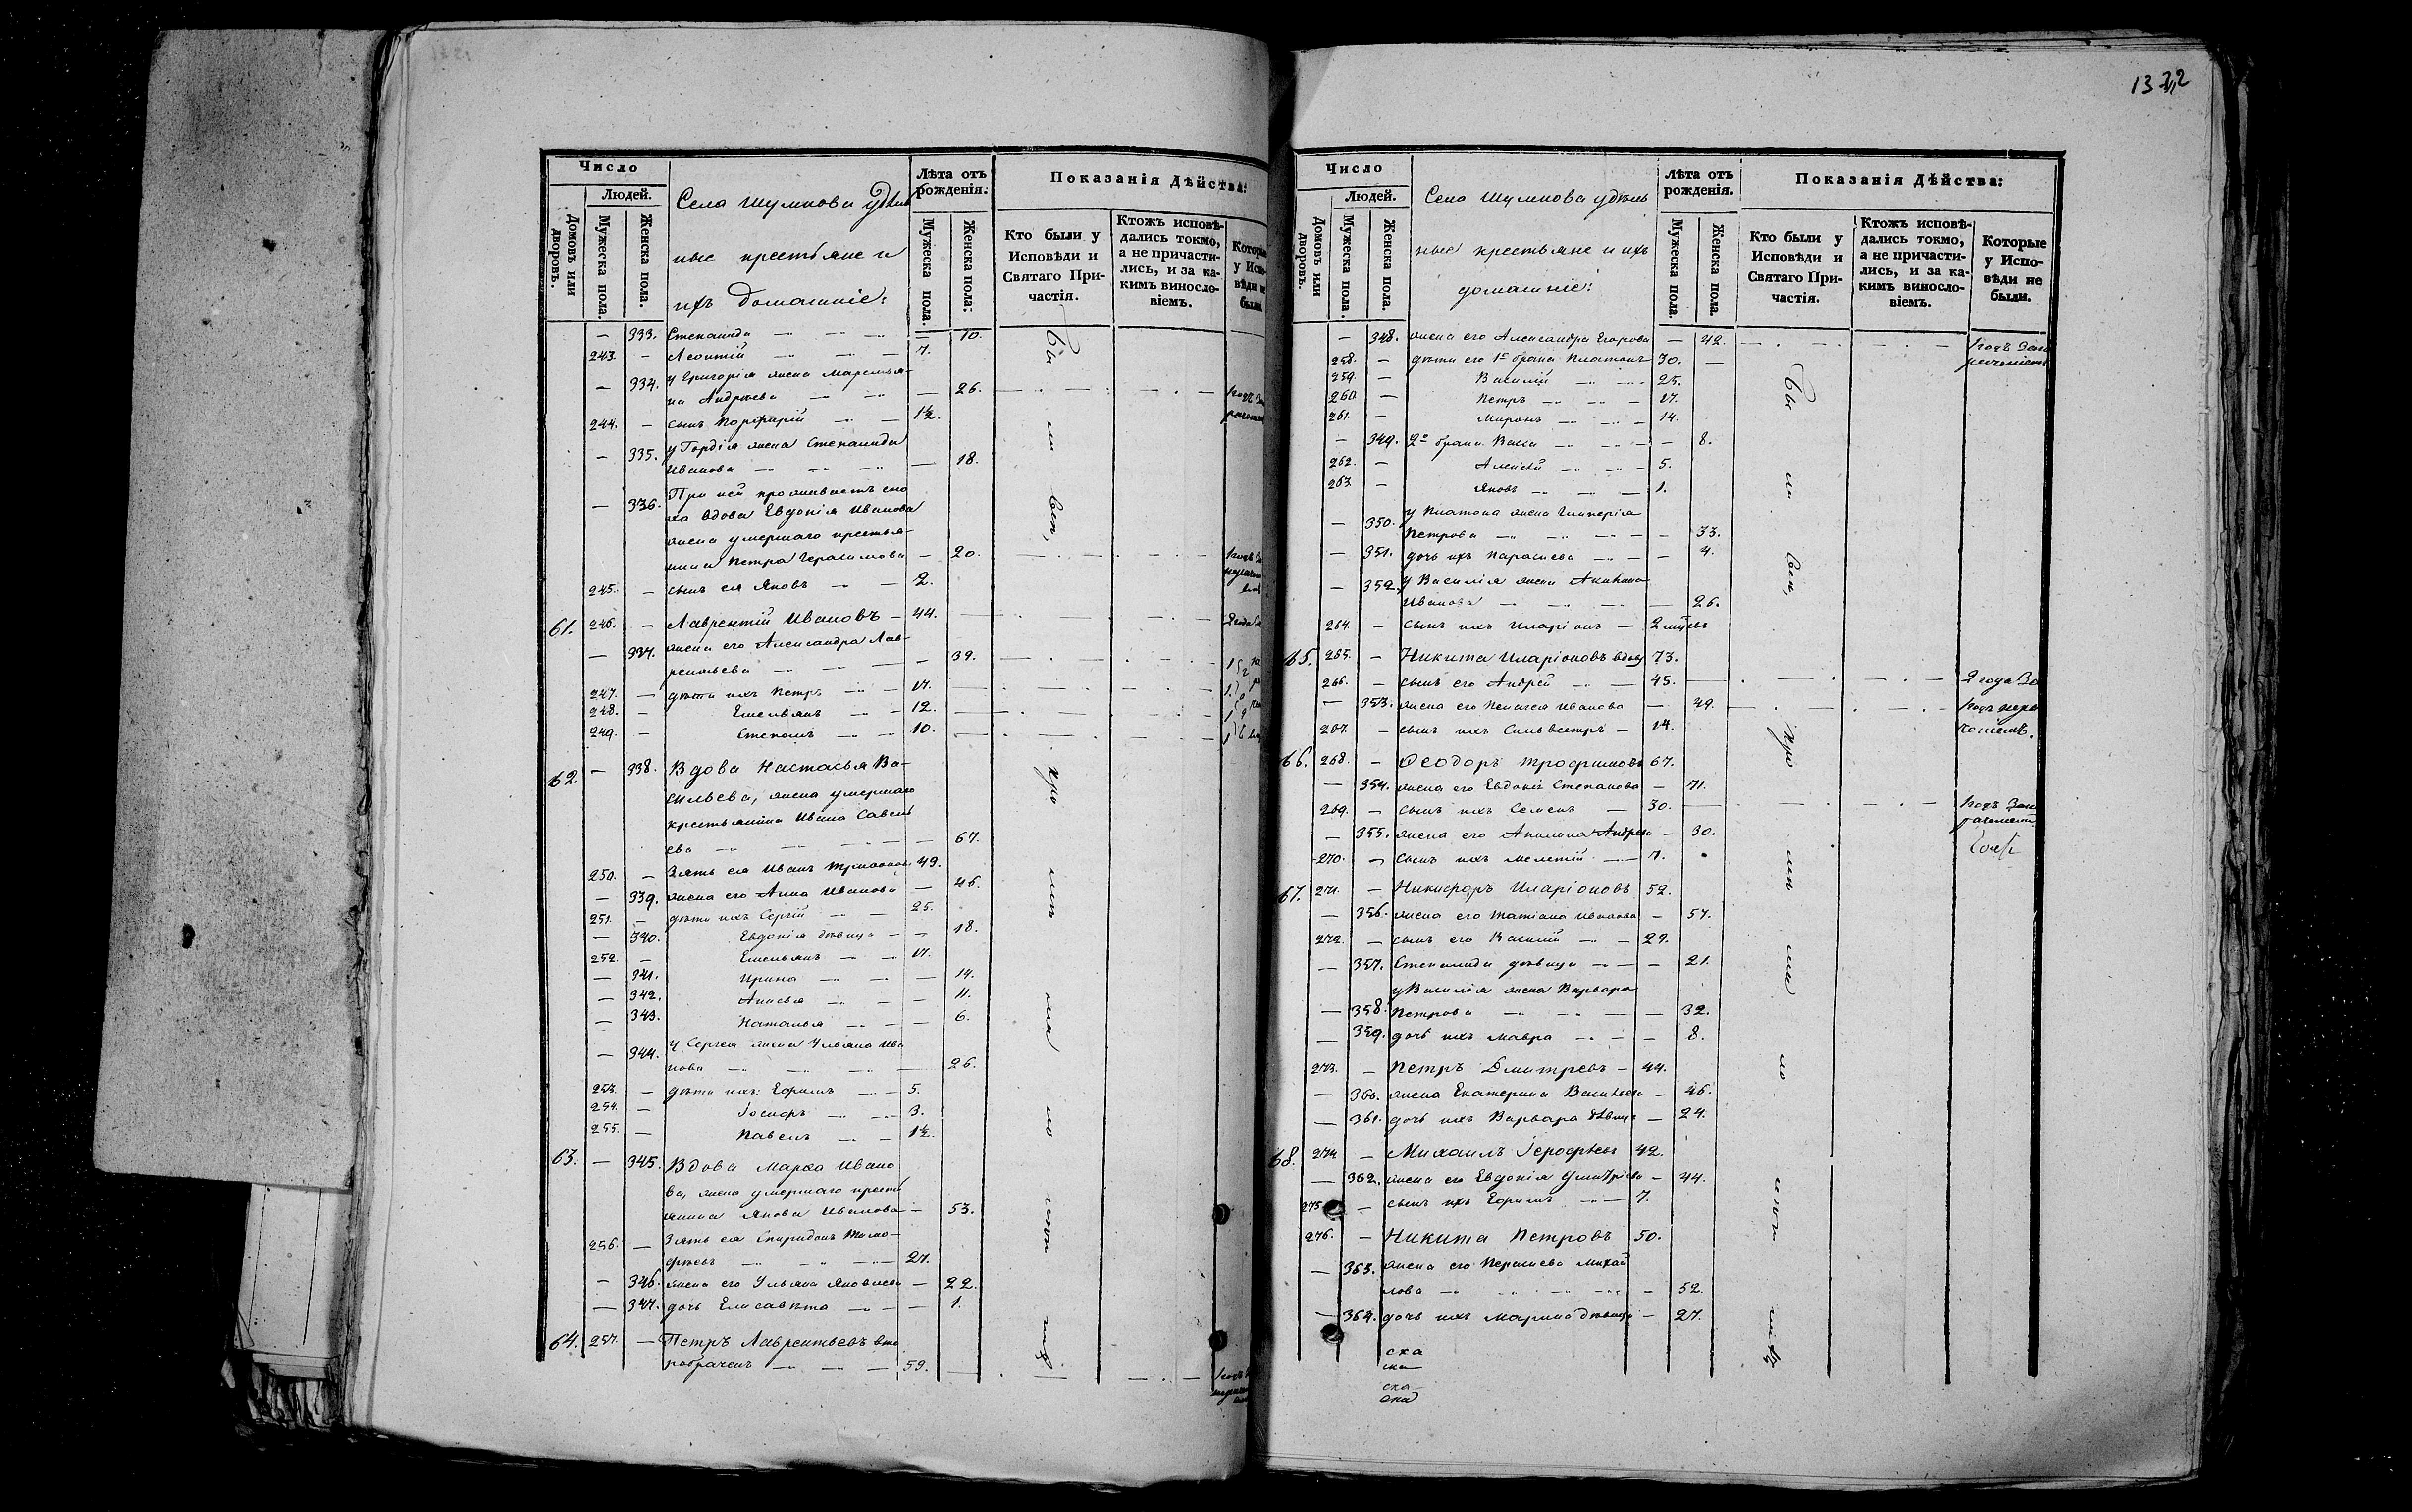 Число
Людей.
Домовъ или дворовъ.
Мужеска пола.
Женска пола.
Села Шумкова удѣль
ные крестьяне и
ихъ домашніе:
Лѣта отъ рожденія:
Мужеска пола.
Женска пола:
Показанія Дѣйства:
Кто были у Исповѣди и Святаго Причастія.
Ктожъ исповѣдались токмо, а не причастились, и за какимъ винословіемъ.
— 333. Степанида — 10.
243. — Леонтій 7.
— 334. у Григорія жена Маремья-
на Андрѣева — 26.
244. — сынъ Порфирій 1½.
— 335. у Гордія жена Степанида
Иванова — 18.
— 336. При ней проживаетъ сно
ха вдова Евдокія Иванова
жена умершаго крестья-
нина Петра Герасимова — 20.
245. — сынъ ея Яковъ — 2.
61. 246. — Лаврентій Ивановъ — 44.
— 337. жена его Александра Лав-
рентьева — 39.
247. — дѣти ихъ Петръ — 17.
248. — Емельянъ — 12.
249. — Степанъ 10.
62. — 338. Вдова Настасья Ва-
сильева, жена умершаго
крестьянина Ивана Савель
ева — 67.
250. — Зять ея Иванъ 49.
— 339. жена его Анна Иванова — 46.
251. — дѣти ихъ Сергій — 25.
— 340. Евдокія дѣвица — 18.
252. — Емельянъ — 17.
— 341. Ирина — 14.
— 342. Анисья — 11.
— 343. Наталья — 6.
— 344. у Сергея жена Ульяна Ива
нова — 26.
253. — дѣти ихъ: Ефимъ — 5.
254. — 3.
255. — Павелъ — 1½.
63. — 345. Вдова Марѳа Ивано
ва, жена умершаго кресть
янина Якова Иванова — 53.
256. — Зять ея Спиридонъ Тимо-
фѣевъ — 27.
— 346. жена его Ульяна Яковлева — 22.
— 347. дочь Елисавѣта — 1.
64. 257. — Петръ Лаврентьевъ вто
робраченъ — 59.
1322
Число
Людей.
Домовъ или дворовъ.
Мужеска пола.
Женска пола.
Села Шумкова удѣль
ные крестьяне и ихъ
домашніе:
Лѣта отъ рожденія.
Мужеска пола.
Женска пола.
Показанія Дѣйства:
Кто были у Исповѣди и Святаго Причастія.
Ктожъ исповѣдались токмо, а не причастились, и за какимъ винословіемъ.
Которые у Исповѣди не были.
— 348. жена его Александра Егорова — 42.
258. — дѣти его 1го брака Платонъ 30.
259. — Василій — 25.
260. — Петръ — 17.
261. — Миронъ — 14.
— 349. 2го брака Васса — 8.
262. — Алексѣй — 5.
263. — Яковъ — 1.
— 350. у Платона жена Гликерія
Петрова — 33.
— 351. дочь ихъ Параскева — 4.
— 352. у Василія жена Акилина
Иванова — 26.
264. — сынъ ихъ Иларіонъ —
65. 265. — Никита Иларіоновъ вдовъ 73.
266. — сынъ его Андрей — 45. 2 года За
— 353. жена его Пелагея Иванова — 49.
267. — сынъ ихъ Сильвестръ — 14.
66. 268. — Ѳеодоръ Трофимовъ 67.
— 354. жена его Евдокія Степанова — 71.
269. — сынъ ихъ Семенъ — 30.
— 355. жена его Акилина Андрее — 30.
270. — сынъ ихъ Мелетій — 7.
67. 271. — Никифоръ Иларіоновъ 52.
— 356. жена его Татіана Иванова — 57.
272. — сынъ его Василій — 29.
— 357. Степанида дѣвица — 21.
у Василія жена Варвара
— 358. Петрова — 32.
— 359. дочь ихъ Мавра — 8.
273. — Петръ Дмитревъ — 44.
— 360. жена Екатерина Васильева — 46.
— 361. дочь ихъ Варвара дѣвица — 24.
68. 274. — Михаилъ Іерофѣевъ 42.
— 362. жена его Евдокія Дмитріева — 44.
275 — сынъ ихъ Ефимъ — 7.
276. — Никита Петровъ 50.
— 363. жена его Параскева Михай
лова — 52.
— 364. дочь ихъ Марина дѣвица — 27.
ска